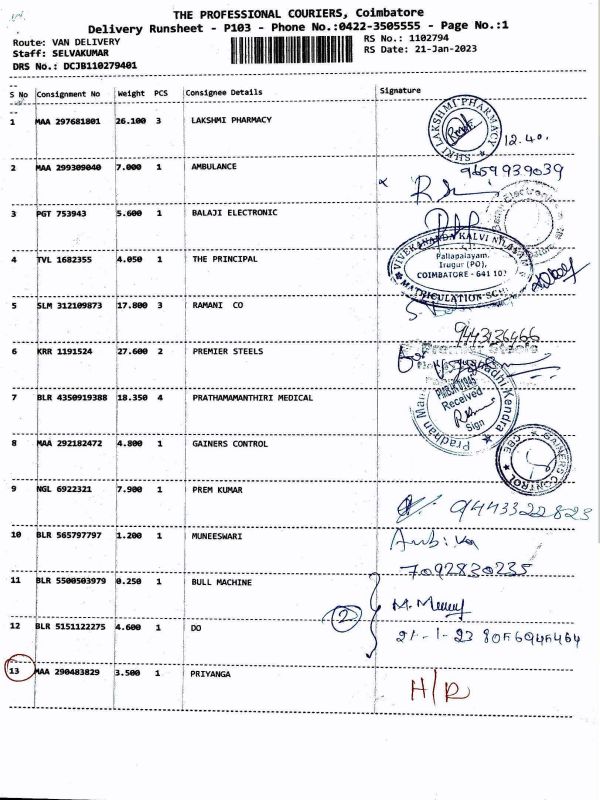 THE PROFESSIONAL COURIERS, Coimbatore
Delivery Runsheet - P103 - Phone No.:0422-3505555 - Page No.:1
Route: VAN DELIVERY
Staff: SELVAKUMAR
DRS No.: DCJB110279401
RS No.: 1102794
RS Date: 21-Jan-2023
S No Consignment No Weight PCS Consignee Details Signature
1 MAA 297681801 26.100 3 LAKSHMI PHARMACY
SHRI LAKSHMI PHARMACY
12.40.
2 MAA 299309040 7.000 1 AMBULANCE
9659939039
3 PGT 753943 5.600 1 BALAJI ELECTRONIC
4 TVL 1682355 4.050 1 THE PRINCIPAL
VIVEKANANDA KALVI NILAYAM
Pallapalayam,
Irugur (PO),
COIMBATORE - 641 103
MATRICULATION SCH
5 SLM 312109873 17.800 3 RAMANI CO
9443136466
6 KRR 1191524 27.600 2 PREMIER STEELS
7 BLR 4350919388 18.350 4 PRATHAMAMANTHIRI MEDICAL
Received
Sign
8 MAA 292182472 4.800 1 GAINERS CONTROL
GAINERS CONTROL
CBE
9 NGL 6922321 7.900 1 PREM KUMAR
9443322823
10 BLR 565797797 1.200 1 MUNEESWARI
7092830235
11 BLR 5500503979 0.250 1 BULL MACHINE
2
12 BLR 5151122275 4.600 1 DO
21-1-23 8056946464
13 MAA 290483829 3.500 1 PRIYANGA
H/R